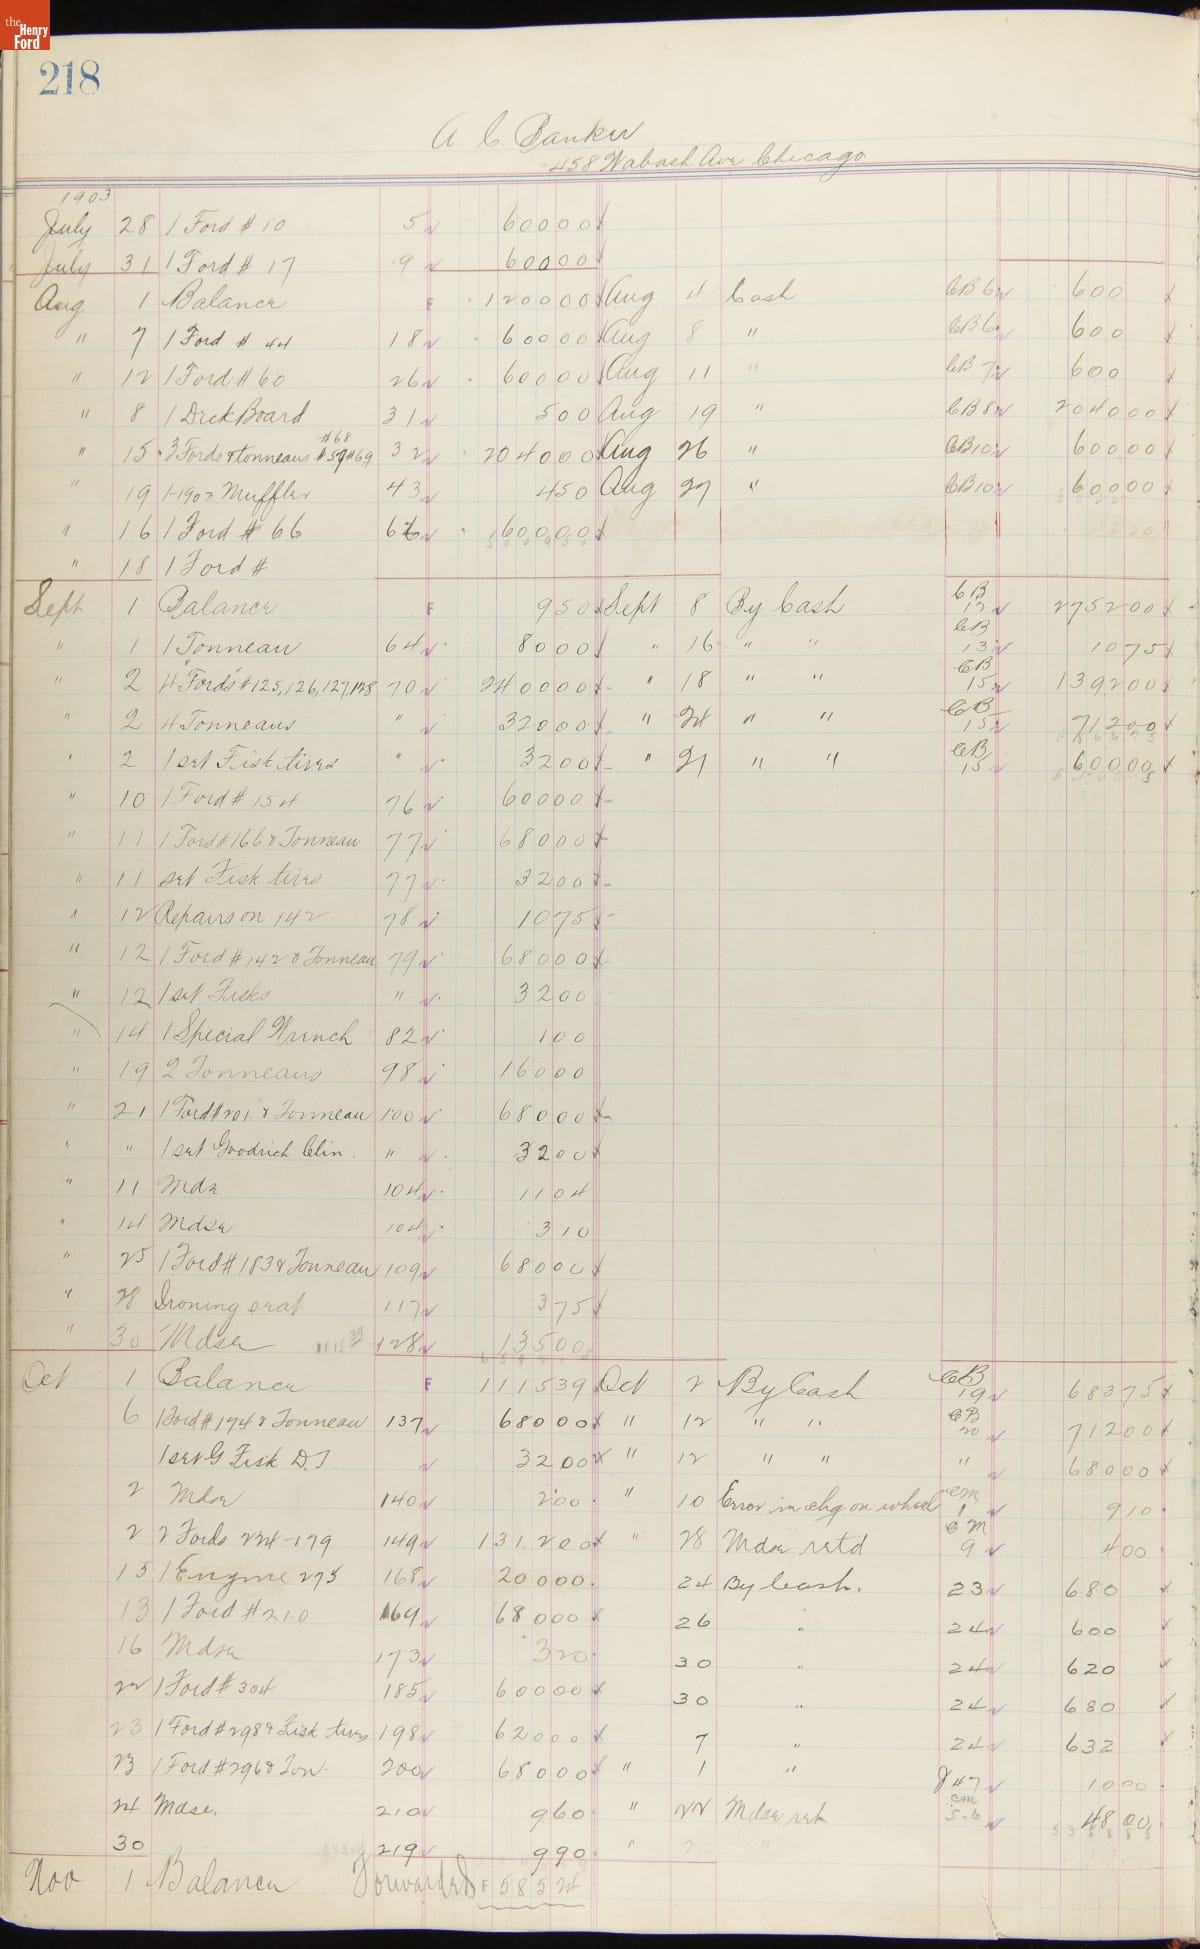 the Henry Ford
218
A. C. Banker
458 Wabash Ave Chicago
1903
July 28 1 Ford # 10 5 60000
July 31 1 Ford # 17 9 60000
Aug 1 Balance F 120000 Aug 4 Cash CB6 600
" 7 1 Ford # 44 18 60000 Aug 8 " CB6 600
" 12 1 Ford # 60 26 60000 Aug 11 " CB7 600
" 8 1 Deck Board 31 500 Aug 19 " CB8 204000
#68
" 15 3 Fords & tonneaus #57 #69 32 204000 Aug 26 " CB10 60000
" 19 1-1903 Muffler 43 450 Aug 27 " CB10 60000
" 16 1 Ford # 66 60000
" 18 1 Ford #
Sept 1 Balance F 950 Sept 8 By Cash CB 12 275200
" 1 1 Tonneau 64 8000 " 16 " " CB 13 1075
" 2 4 "Fords" # 125, 126, 127, 128 70 240000 " 18 " " CB 15 139200
" 2 4 Tonneaus " 32000 " 24 " " CB 15 71200
" 2 1 set Fisk tires " 3200 " 21 " " CB 15 60000
" 10 1 Ford # 154 76 60000
" 11 1 Ford # 166 & Tonneau 77 68000
" 11 set Fisk tires 77 3200
" 12 Repairs on 142 78 1075
" 12 1 Ford # 142 & Tonneau 79 68000
" 12 1 set Fisks " 3200
" 14 1 Special Wrench 82 100
" 19 2 Tonneaus 98 16000
" 21 1 Ford # 201 & Tonneau 100 68000
" " 1 set Goodrich Clin. " 3200
" 11 Mdse 104 1104
" 14 Mdse 104 310
" 25 1 Ford # 183 & Tonneau 109 68000
" 28 Ironing 117 375
" 30 Mdse 1115 39 128 13500
Oct 1 Balance F 111539 Oct 2 By Cash CB 19 68375
6 1 Ford # 174 & Tonneau 137 68000 " 12 " " CB 20 71200
1 set G Fisk D.T. 3200 " 12 " " " 68000
2 Mdse 140 200 " 10 Error in chg on wheel cm 1 910
2 2 Fords 224-179 149 131200 " 28 Mdse retd CM 9 400
15 1 Engine 275 168 20000 24 By Cash. 23 680
13 1 Ford # 210 169 68000 26 " 24 600
16 Mdse 173 320 30 " 24 620
22 1 Ford # 304 185 60000 30 " 24 680
23 1 Ford # 298 & Fisk tires 198 62000 7 " 24 632
23 1 Ford # 296 & Ton. 200 68000 " 1 " J47 1000
24 Mdse. 210 960 " 22 Mdse ret cm 5-6 4800
30 219 990 "
Nov 1 Balance Forwarded F 58524